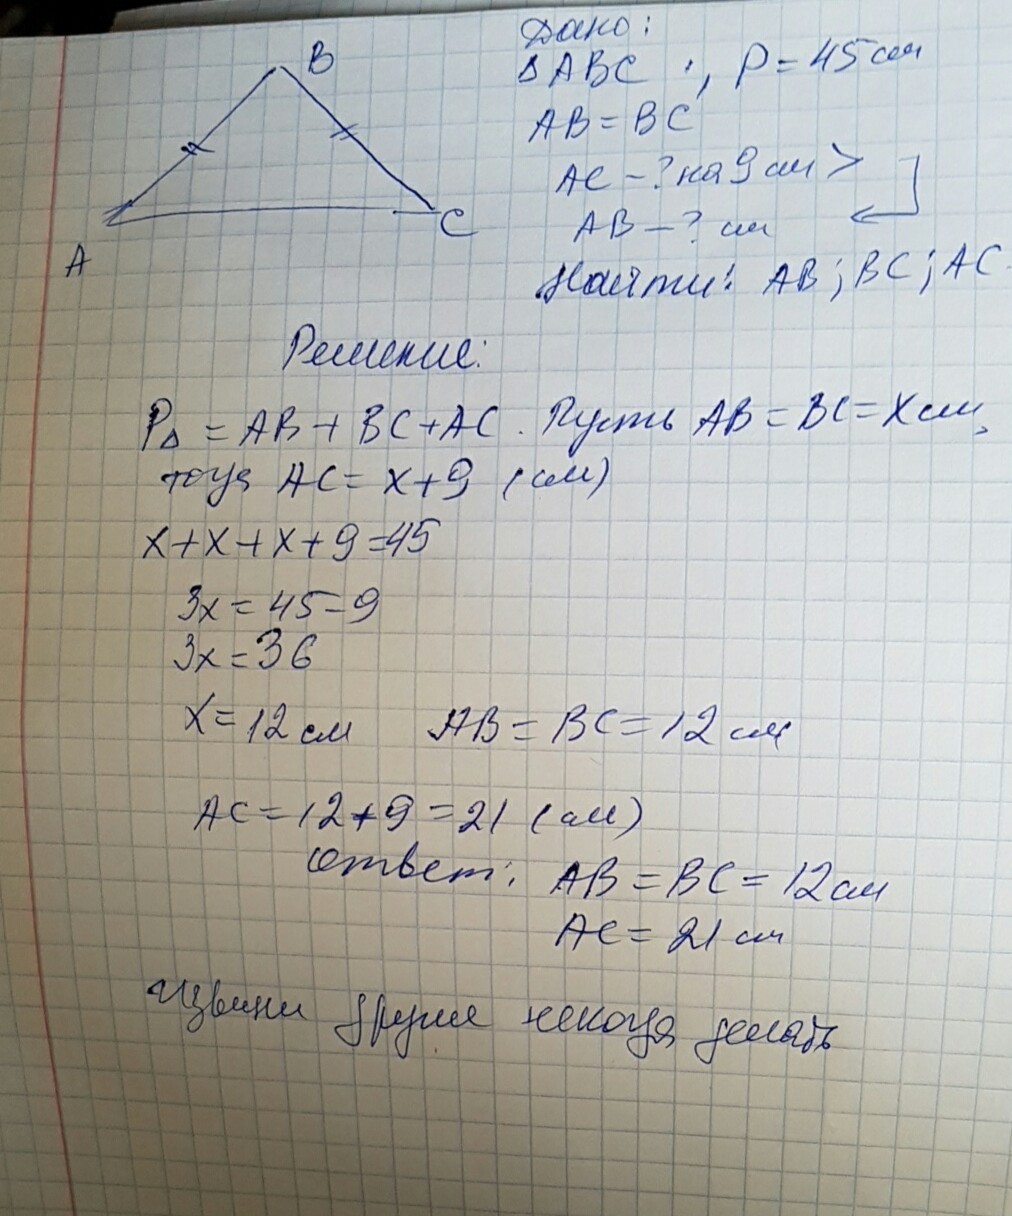 B
A
C
Дано:
Δ ABC ., P = 45 см
AB = BC
AC - ? на 9 см >
AB - ? см
Найти: AB; BC; AC
Решение:
PΔ = AB + BC + AC. Пусть AB = BC = x см,
тогда AC = x + 9 (см)
x + x + x + 9 = 45
3x = 45 - 9
3x = 36
x = 12 см AB = BC = 12 см
AC = 12 + 9 = 21 (см)
Ответ: AB = BC = 12 см
AC = 21 см
Извини другие некогда делать